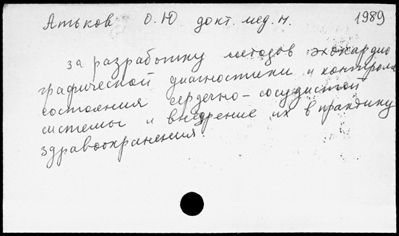 Атьков О.Ю докт. мед. н. 1989
за разработку методов эхокардио
графической диагностики и контроля
состояния сердечно-сосудистой
системы и внедрение их в практику
здравоохранения.